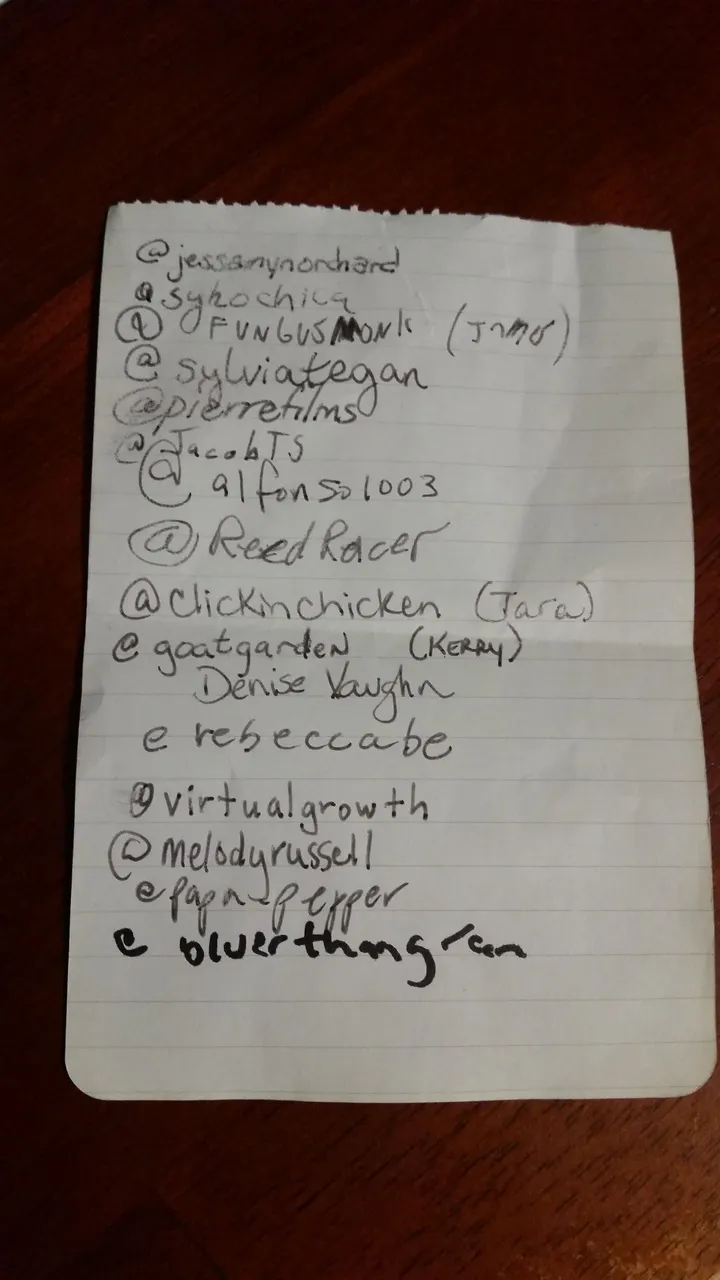 @jessamynorchard
@sykochica
@FUNGUSMONK
@sylviategan
@pierrefilms
@JacobTS
@alfonso1003
@ReedRacer
@clickinchicken (Tara)
@goatgarden (KERRY)
Denise Vaughn
@rebeccabe
@virtualgrowth
@melodyrussell
@papa-pepper
@bluerthangreen